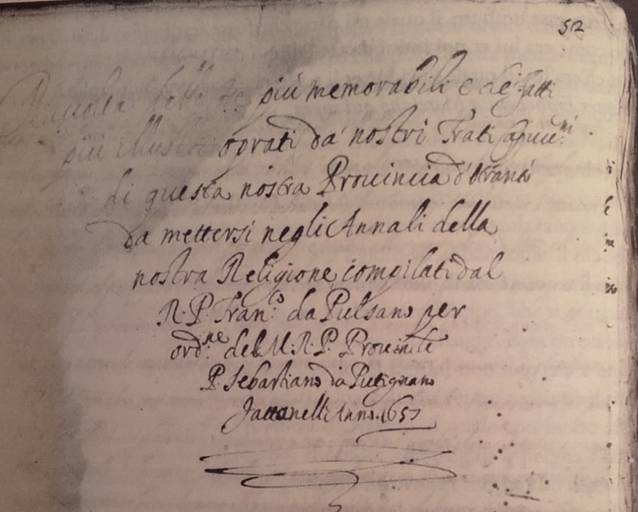 52
Raccolta più memorabili e de fatti
più illustri oprati da nostri Frati Capuc.ni
di questa nostra Prouincia d'Otranto
da mettersi negli Annali della
nostra Religione compilati dal
R. P. Fran.co da Pulsano per
ord.ne del M. R. P. Prouinle
P. Sebastiano da Putignano
fatta nell'Anno 1657